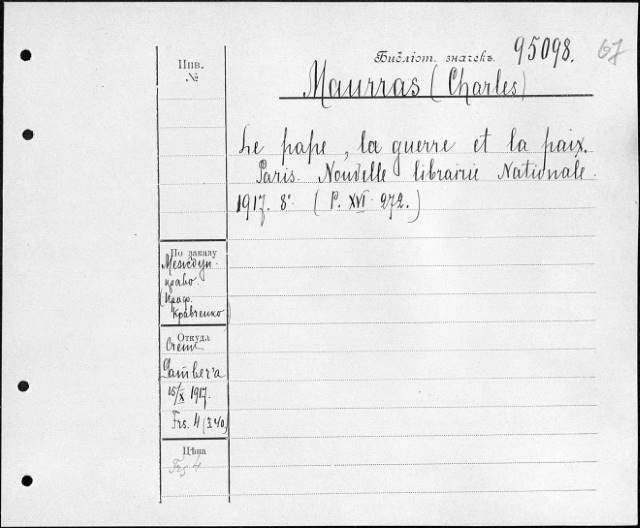 Инв.
№
Библіот. значекъ. 95098. 67
Maurras (Charles)
Le pape, la guerre et la paix.
Paris. Nouvelle librairie Nationale.
1917. 8º. (P. XVI 272.)
По заказу
Междун.
право.
(Проф.
Кравченко)
Откуда
Счетъ
15/X 1917.
Frs. 4 (340)
Цѣна
Frs 4